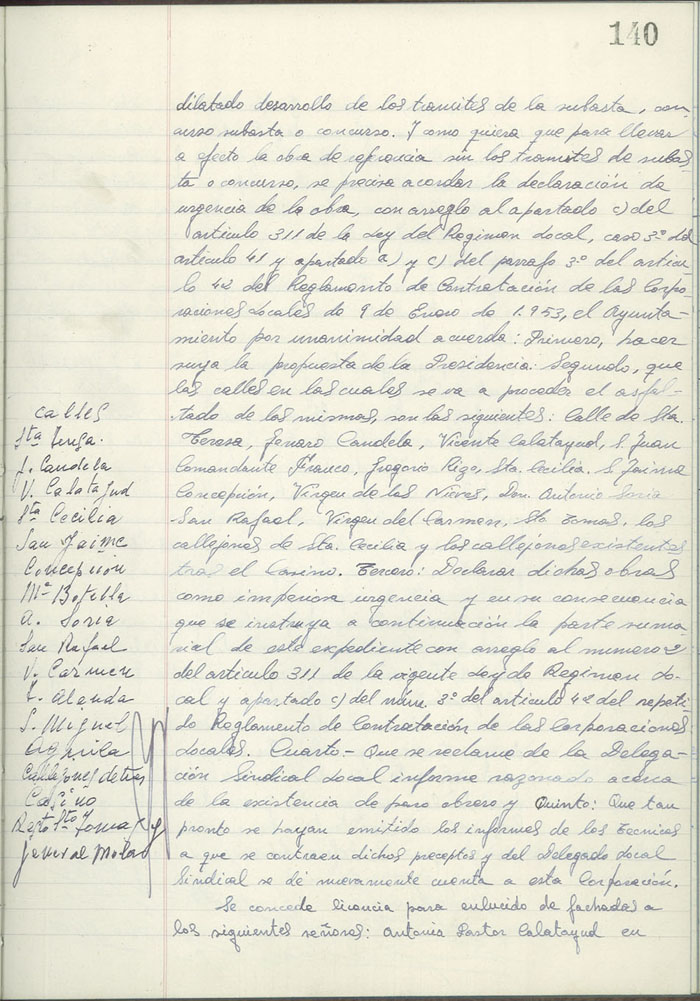 140
dilatado desarrollo de los tramites de la subasta, con-
curso subasta o concurso. Y como quiera que para llevar
a efecto la obra de referencia sin los tramites de subas
ta o concurso, se precisa acordar la declaración de
urgencia de la obra, con arreglo al apartado c) del
artículo 311 de la Ley del Regimen Local, caso 3º del
artículo 41 y apartado a) y c) del parrafo 3º del articu
lo 42 del Reglamento de Contratación de las Corpo-
raciones Locales de 9 de Enero de 1.953, el Ayunta-
miento por unanimidad acuerda: Primero, hacer
suya la propuesta de la Presidencia. Segundo, que
las calles en las cuales se va a proceder el asfal-
tado de las mismas, son las siguientes: Calle de Sta.
Teresa, Jenaro Candela, Vicente Calatayud, S. Juan
Comandante Franco, Gregorio Rizo, Sta. Cecilia. S. Jaime
Concepción, Virgen de las Nieves, Don Antonio Soria
San Rafael, Virgen del Carmen, Sto Tomas, los
callejones de Sta. Cecilia y los callejones existentes
tras el Casino. Tercero: Declarar dichas obras
como imperiosa urgencia y en su consecuencia
que se instruya a continuación la parte suma-
rial de este expediente con arreglo al numero 2
del artículo 311 de la vigente Ley de Regimen Lo-
cal y apartado c) del núm. 3º del artículo 42 del repeti
do Reglamento de Contratación de las Corporaciones
Locales. Cuarto.- Que se reclame de la Delega-
ción Sindical Local informe razonado acerca
de la existencia de paro obrero y Quinto: Que tan
pronto se hayan emitido los informes de los Tecnicos
a que se contraen dichos preceptos y del Delegado Local
Sindical se dé nuevamente cuenta a esta Corporación.
Se concede licencia para enlucido de fachadas a
los siguientes señores: Antonia Pastor Calatayud en
calles
Sta Teresa.
J. Candela
V. Calatayud
Sta Cecilia
San Jaime
Concepción
Mª Botella
A. Soria
San Rafael
V. Carmen
L. Alenda
S. Miguel
Callejones detras
Casino
Resto Sto Tomas y
General Mola